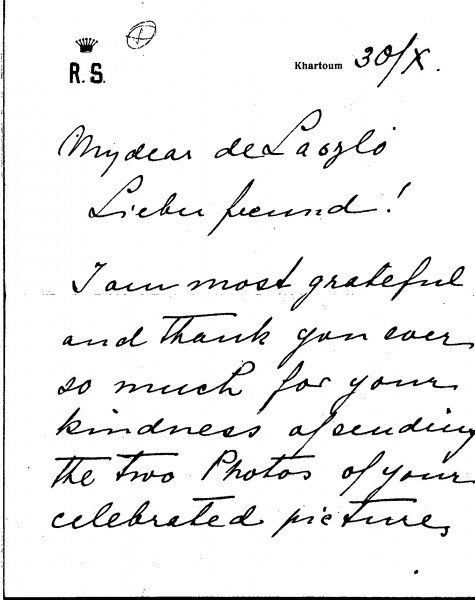 R. S.
Khartoum 30/X.
My dear de László
Lieber freund!
I am most grateful
and thank you ever
so much for your
kindness of sending
the two Photos of your
celebrated pictures